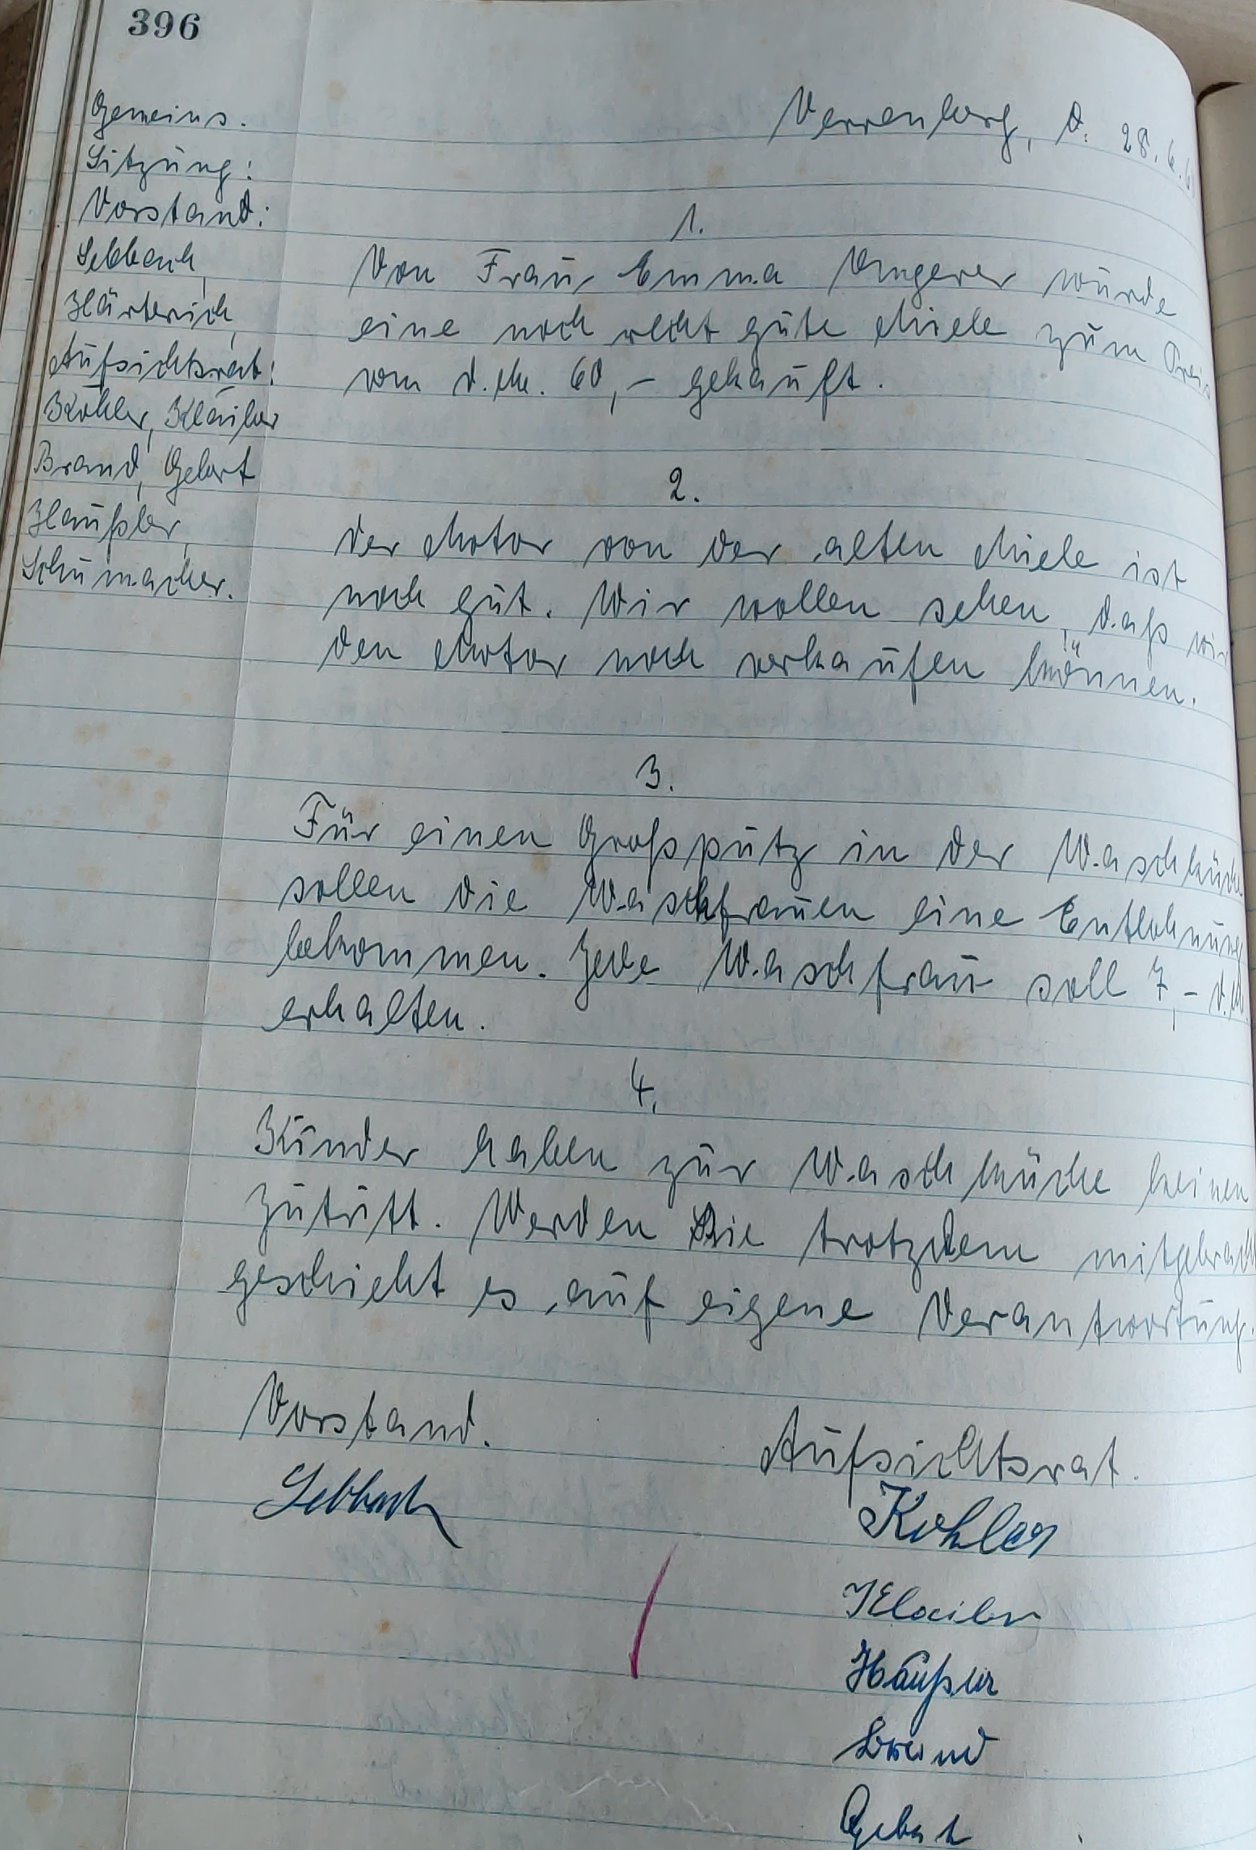 396
Gemeins.
Sitzung:
Vorstand:
Sebbach,
Härterich,
Aufsichtsrat:
Kohler, Kläiber
Brand, Gebert
Haußler,
Schumacher.
Verrenberg, d. 28.6.
1.
Von Frau Emma Ungerer wurde
eine noch recht gute Miele zum Preis
vom d.M. 60,- gekauft.
2.
Der Motor von der alten Miele ist
noch gut. Wir wollen sehen, daß wir
den Motor noch verkaufen können.
3.
Für einen Großputz in der Waschküche
sollen die Waschfrauen eine Entlohnung
bekommen. Jede Waschfrau soll 7,- d.M.
erhalten.
4.
Kinder haben zur Waschküche keinen
Zutritt. Werden Sie trotzdem mitgebracht
geschieht es auf eigene Verantwortung.
Vorstand.
Aufsichtsrat.
Sebbach
Kohler
Klaiber
Haußler
Brand